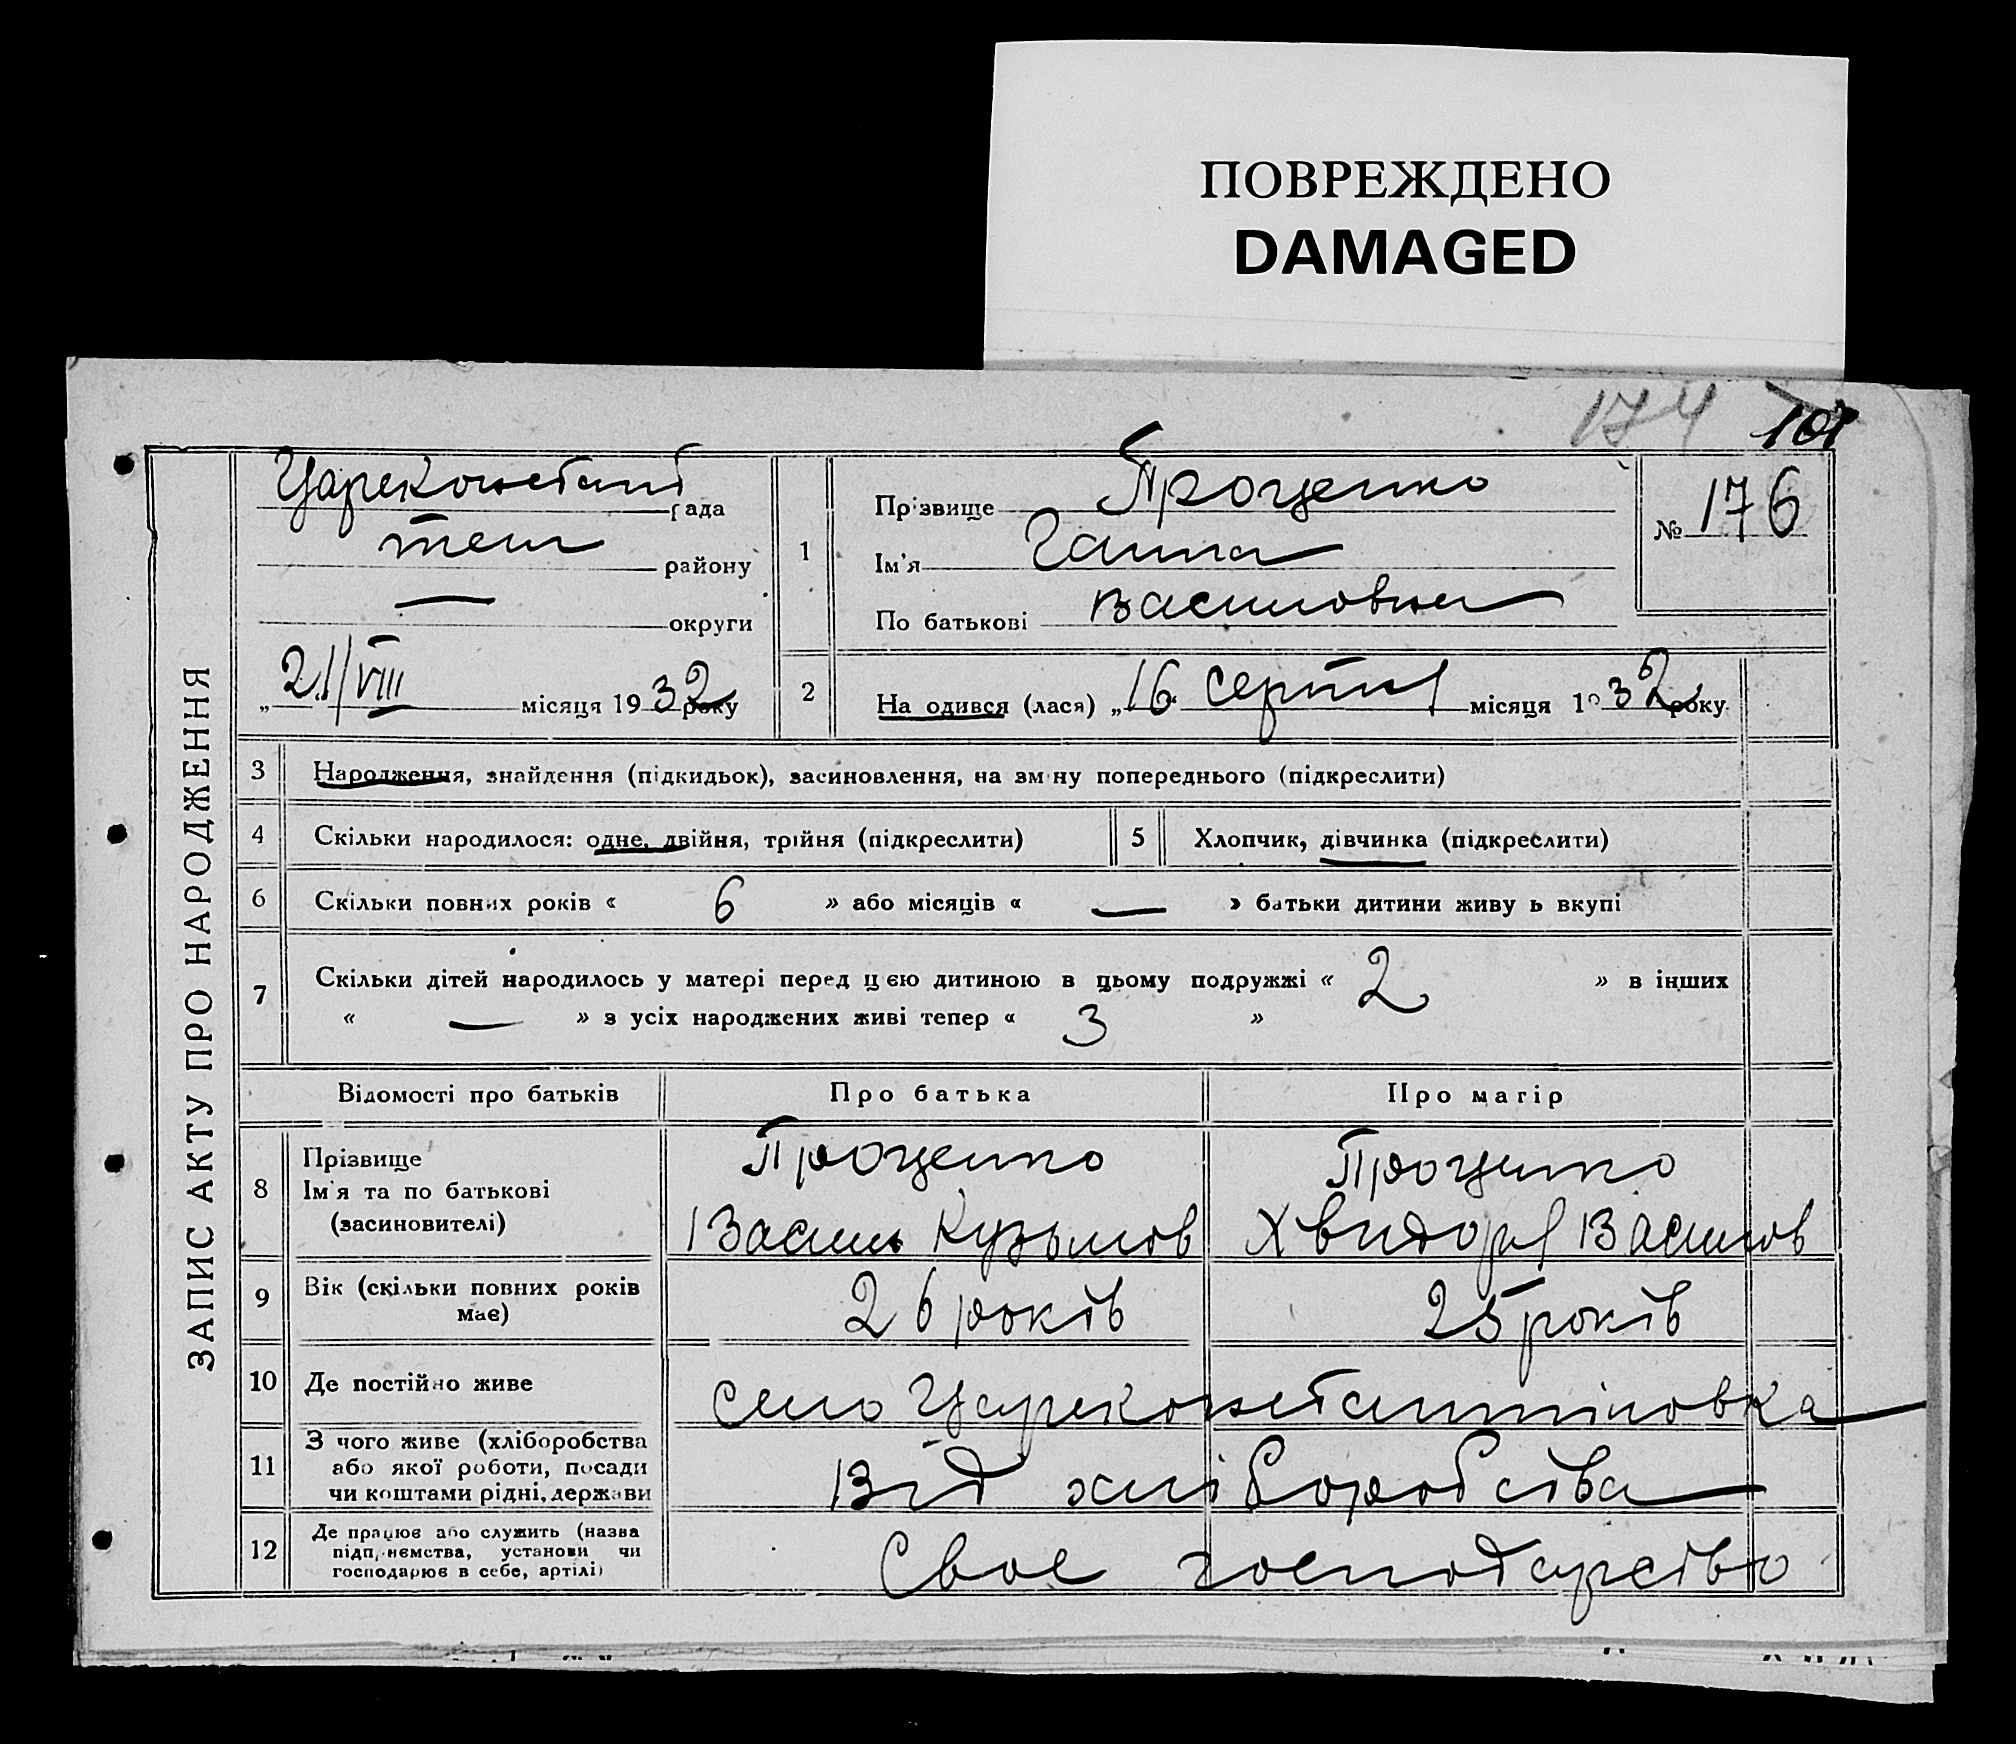 ПОВРЕЖДЕНО
DAMAGED
174 101
ЗАПИС АКТУ ПРО НАРОДЖЕННЯ
Цареконстант рада
теж району
— округи
„21/VIII місяця 1932 року
1
Прізвище Проценко
Ім'я Ганна
По батькові Василовна
№ 176
2 На одився (лася) „16" серпня місяця 1932 року
3 Народження, знайдення (підкидьок), засиновлення, на зміну попереднього (підкреслити)
4 Скільки народилося: одне, двійня, трійня (підкреслити) 5 Хлопчик, дівчинка (підкреслити)
6 Скільки повних років « 6 » або місяців « — » батьки дитини живу ь вкупі
7 Скільки дітей народилось у матері перед цією дитиною в цьому подружжі « 2 » в інших
« — » з усіх народжених живі тепер « 3 »
Відомості про батьків Про батька Про матір
8 Прізвище
Ім'я та по батькові
(засиновителі)
Проценко
Василь Кузьмов
Проценко
Хвидоря Васильов
9 Вік (скільки повних років
має)
26 років 25 років
10 Де постійно живе село Цареконстантіновка
11 З чого живе (хліборобства
або якої роботи, посади
чи коштами рідні, держави
Від хліборобства
12 Де працює або служить (назва
підпр-немства, установи чи
господарює в себе, артілі)
Своє господарство